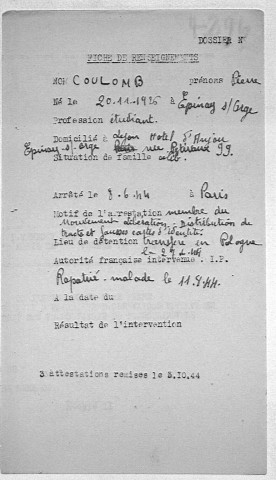 DOSSIER N°
FICHE DE RENSEIGNEMENTS
NOM COULOMB prénoms Pierre
Né le 20.11.1926 à Épinay s/Orge
Profession étudiant.
Domicilié à Lyon Hotel d'Anjou
Epinay-s/-orge rue 99.
Situation de famille célib.
Arrêté le 8-6.44 à Paris
Motif de l'arrestation membre du
Mouvement Libération - Distribution de
tracts et fausses cartes d'identité.
Lieu de détention transféré en Pologne
le
Autorité française intervenue. I.P.
Rapatrié - malade le
A la date du
Résultat de l'intervention
3 attestations remises le 3.10.44